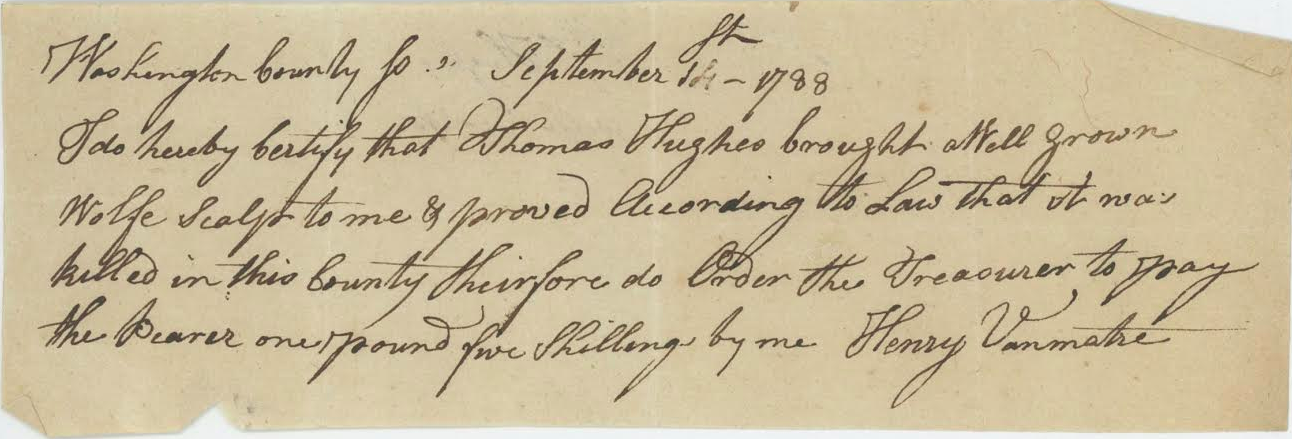 Washington County ss.,, September 1st – 1788
I do hereby Certify that Thomas Hughes brought a Well grown
Wolfe Scalp to me & proved According to Law that it was
killed in this County theirfore do Order the Treasurer to pay
the Bearer one pound five Shilling by me Henry Vanmatre